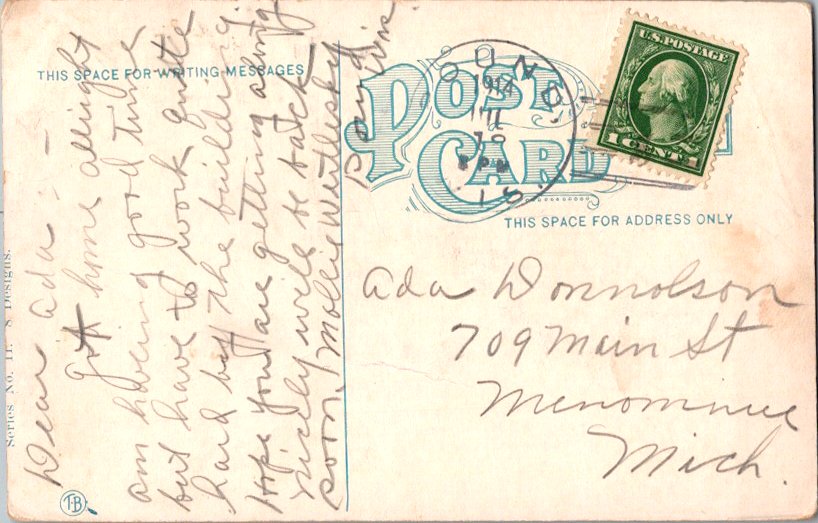 THIS SPACE FOR WRITING MESSAGES
POST
CARD
U.S. POSTAGE
1 CENT 1
SOUND,
1914
8 PM
IS.
THIS SPACE FOR ADDRESS ONLY
Dear Ada:-
Got home allright
am having good time
but have to work quite
hard but the building.
Hope you are getting along
nicely will be back
soon. Mollie
Pound
Wis.
Ada Donnolson
709 Main St
Menominee
Mich.
Series No. 11. 8 Designs.
TB